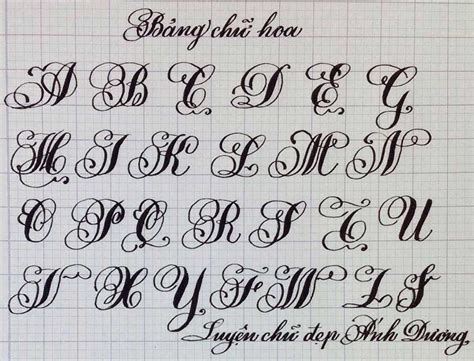 Bảng chữ hoa
A B C D E G
H I K L M N
O P Q R S T U
V X Y F W
Luyện chữ đẹp Ánh Dương